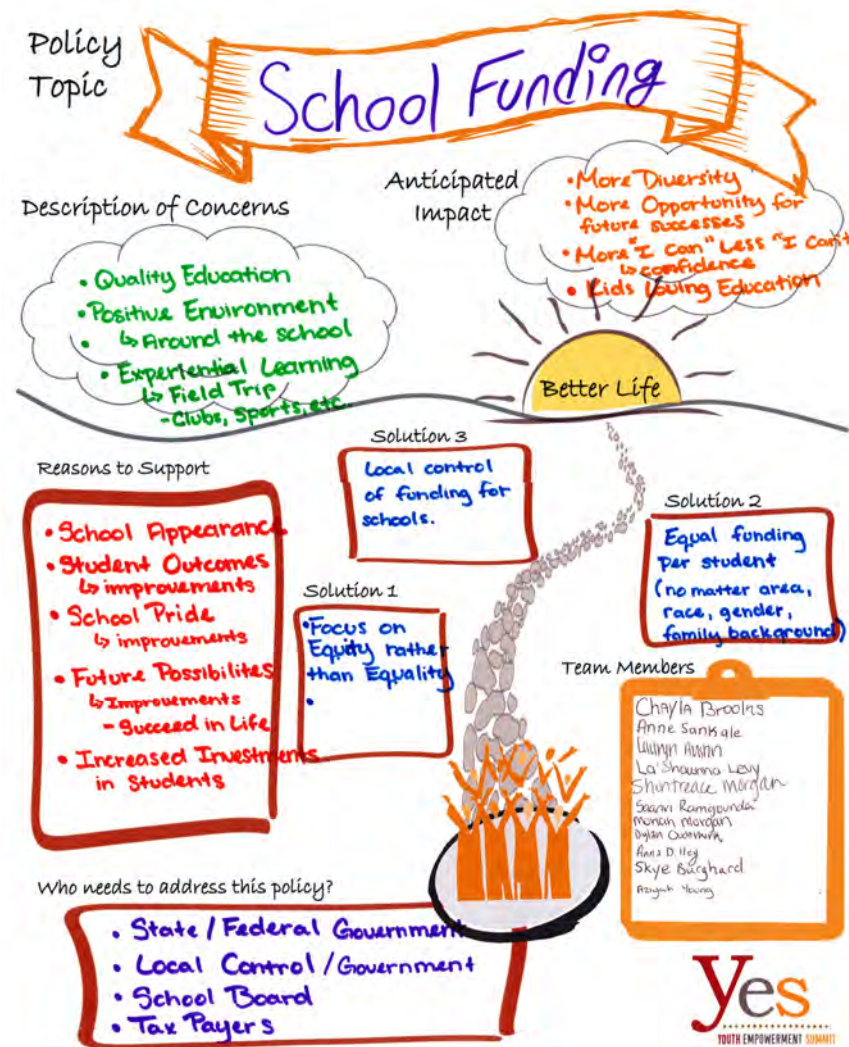 Policy
Topic
School Funding
Description of Concerns
• Quality Education
• Positive Environment
• ↳ Around the school
• Experiential Learning
↳ Field Trip
- Clubs, Sports, etc.
Anticipated
Impact
• More Diversity
• More Opportunity for
future successes
• More "I can" Less "I can't
↳ confidence
• Kids Loving Education
Better Life
Reasons to Support
• School Appearance
• Student Outcomes
↳ improvements
• School Pride
↳ improvements
• Future Possibilites
↳ Improvements
- Succeed in Life
• Increased Investments
in Students
Solution 3
Local control
of funding for
schools.
Solution 1
• Focus on
Equity rather
than Equality
•
Solution 2
Equal funding
per student
(no matter area,
race, gender,
family background)
Team Members
Chayla Brooks
Anne Sankale
La'Shawna Levy
Shuntreace Morgan
Saanvi Ramgounda
Morgan
Dylan
Anna Dilley
Skye Burghard
Young
Who needs to address this policy?
• State / Federal Government
• Local Control / Government
• School Board
• Tax Payers
yes
YOUTH EMPOWERMENT SUMMIT